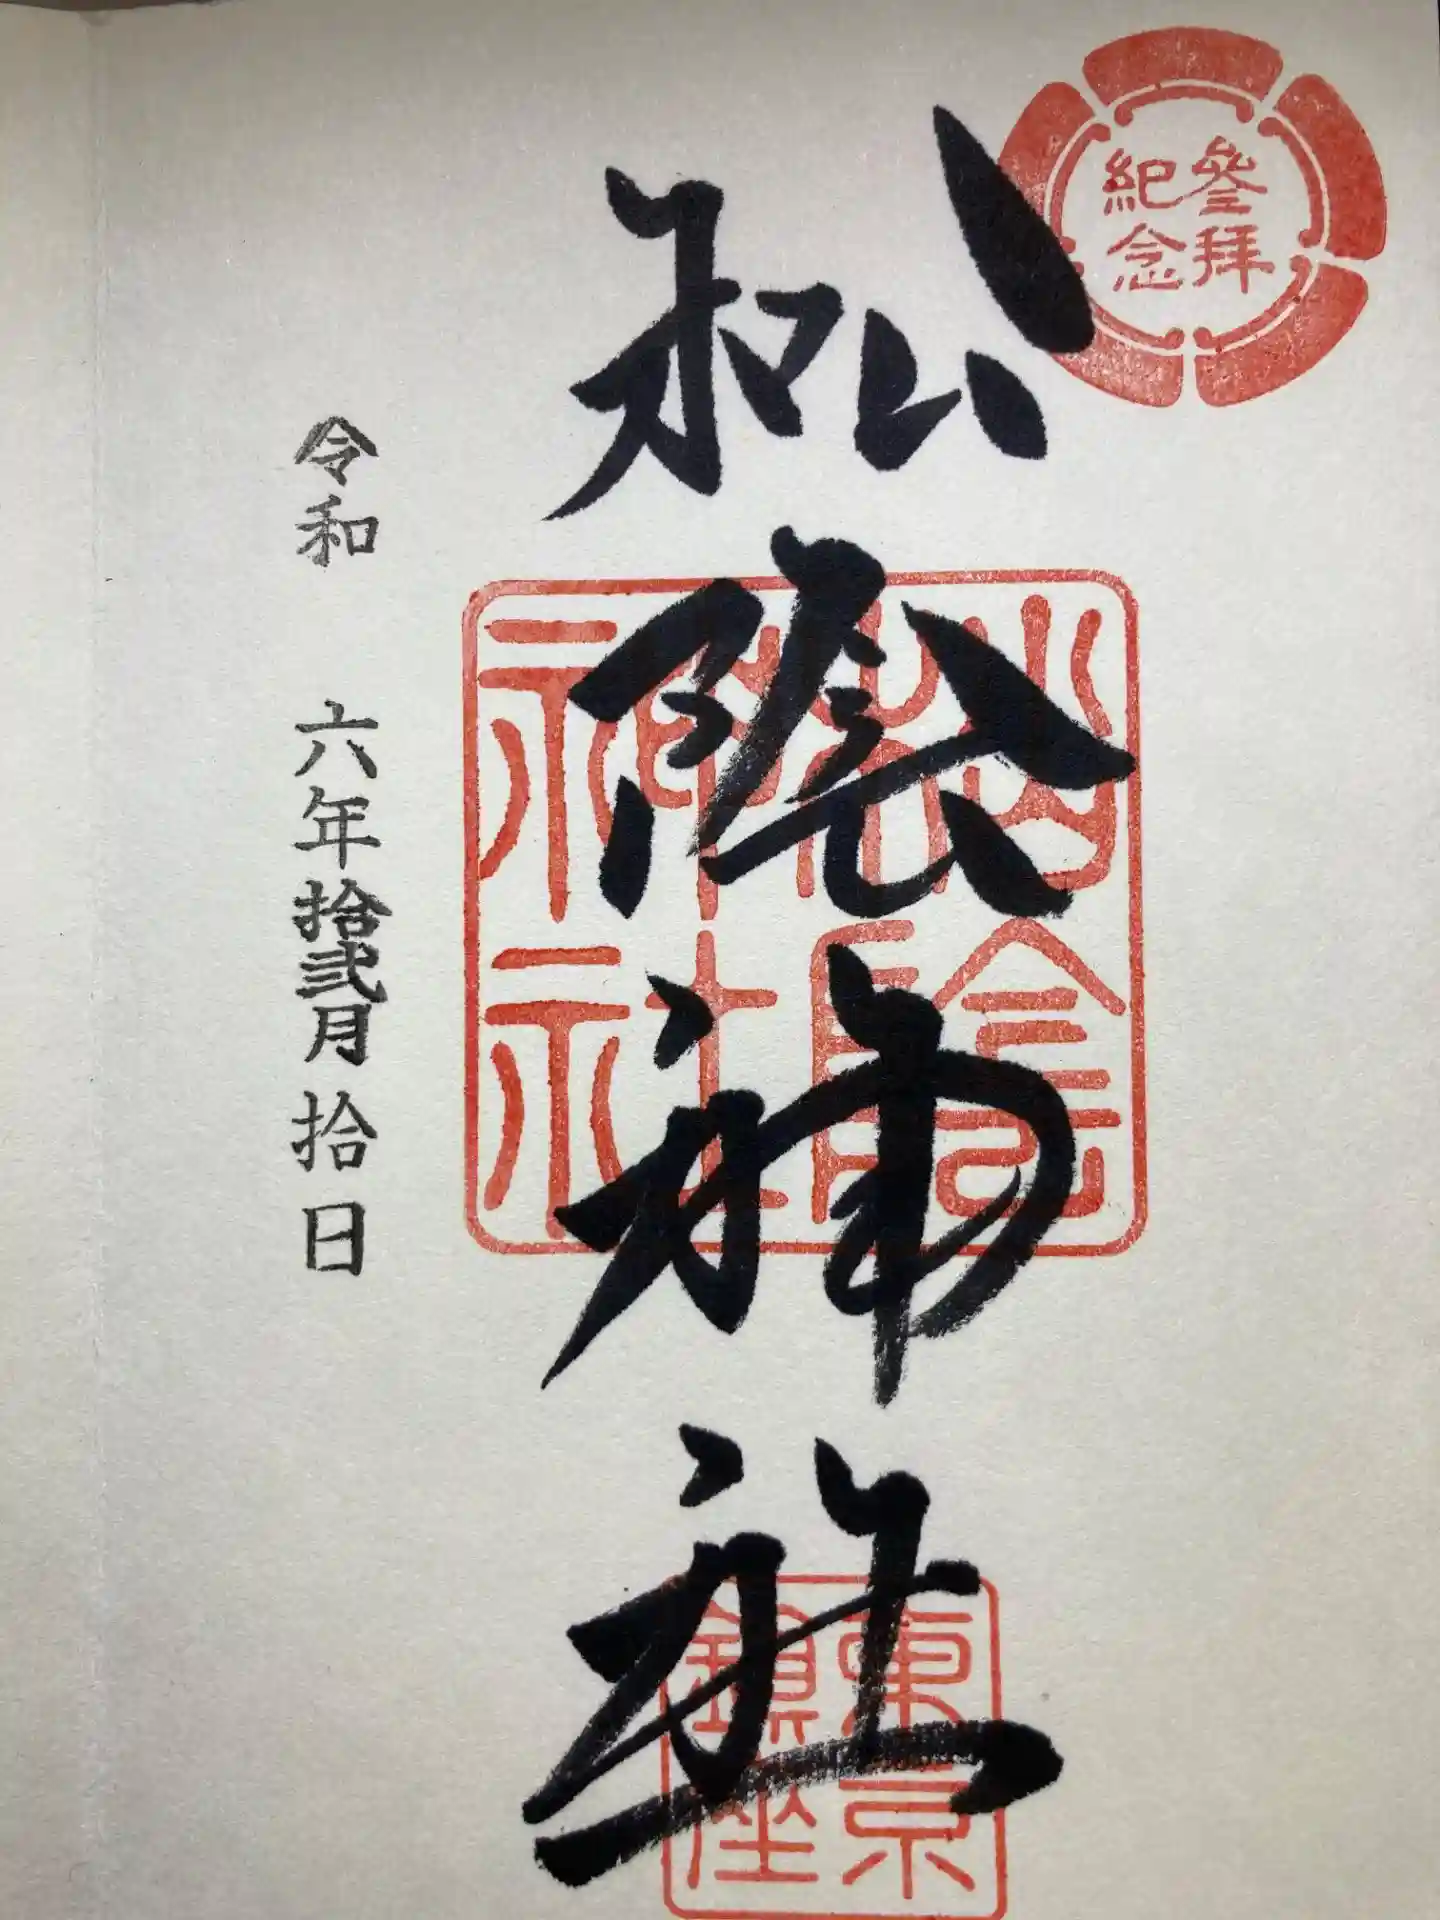 參拜
紀念
松陰神社
松陰
神社
東京
鎮座
令和 六年拾弐月拾日